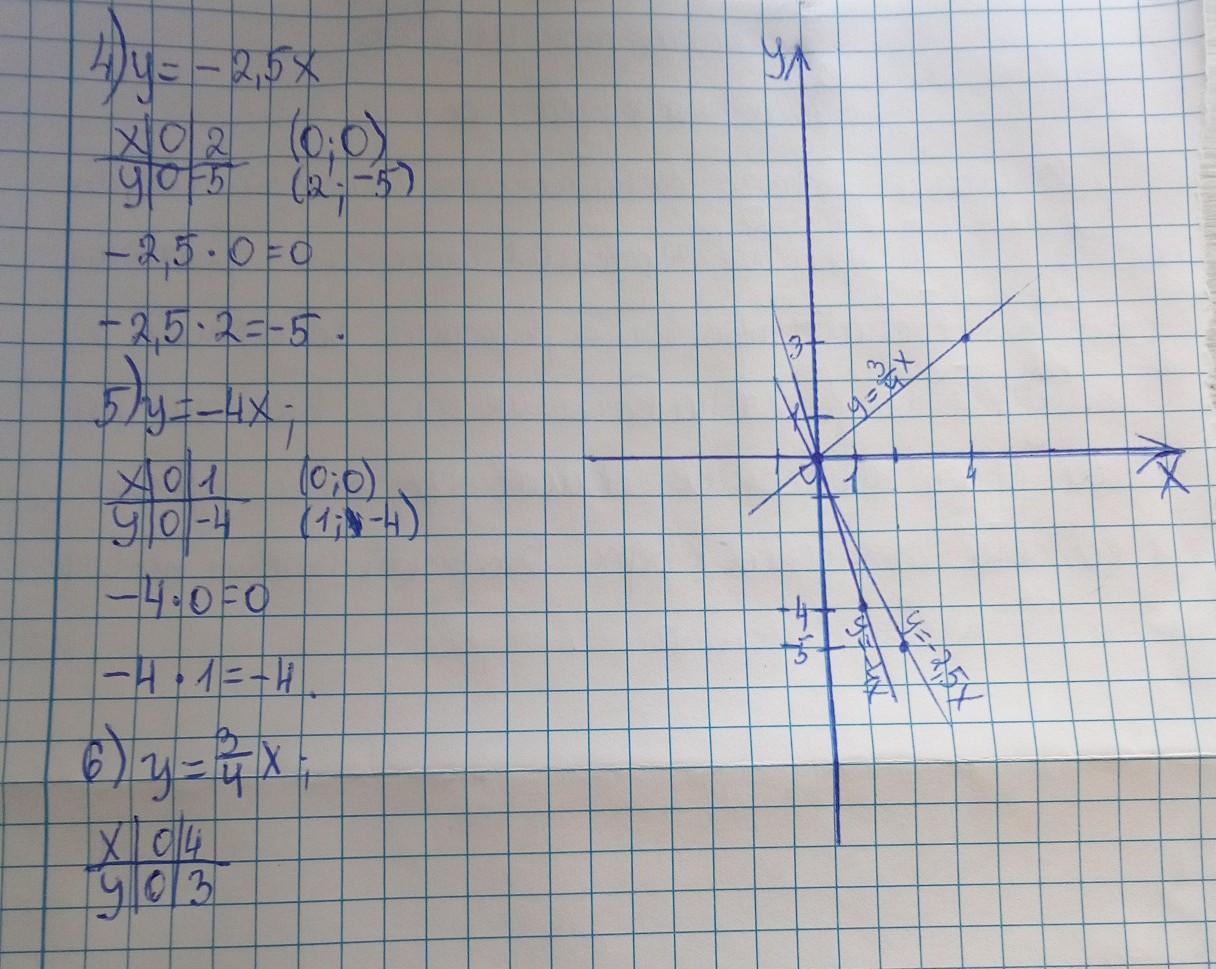 4) y = -2,5x
x | 0 | 2 (0;0)
y | 0 | -5 (2; -5)
-2,5 · 0 = 0
-2,5 · 2 = -5 .
5) y = -4x;
x | 0 | 1 (0;0)
y | 0 | -4 (1; -4)
-4 · 0 = 0
-4 · 1 = -4 .
6) y = 3/4 x;
x | 0 | 4
y | 0 | 3
y
3
1
y = 3/4 x
0 1 4
x
-4
-5
y = -4x
y = -2,5x